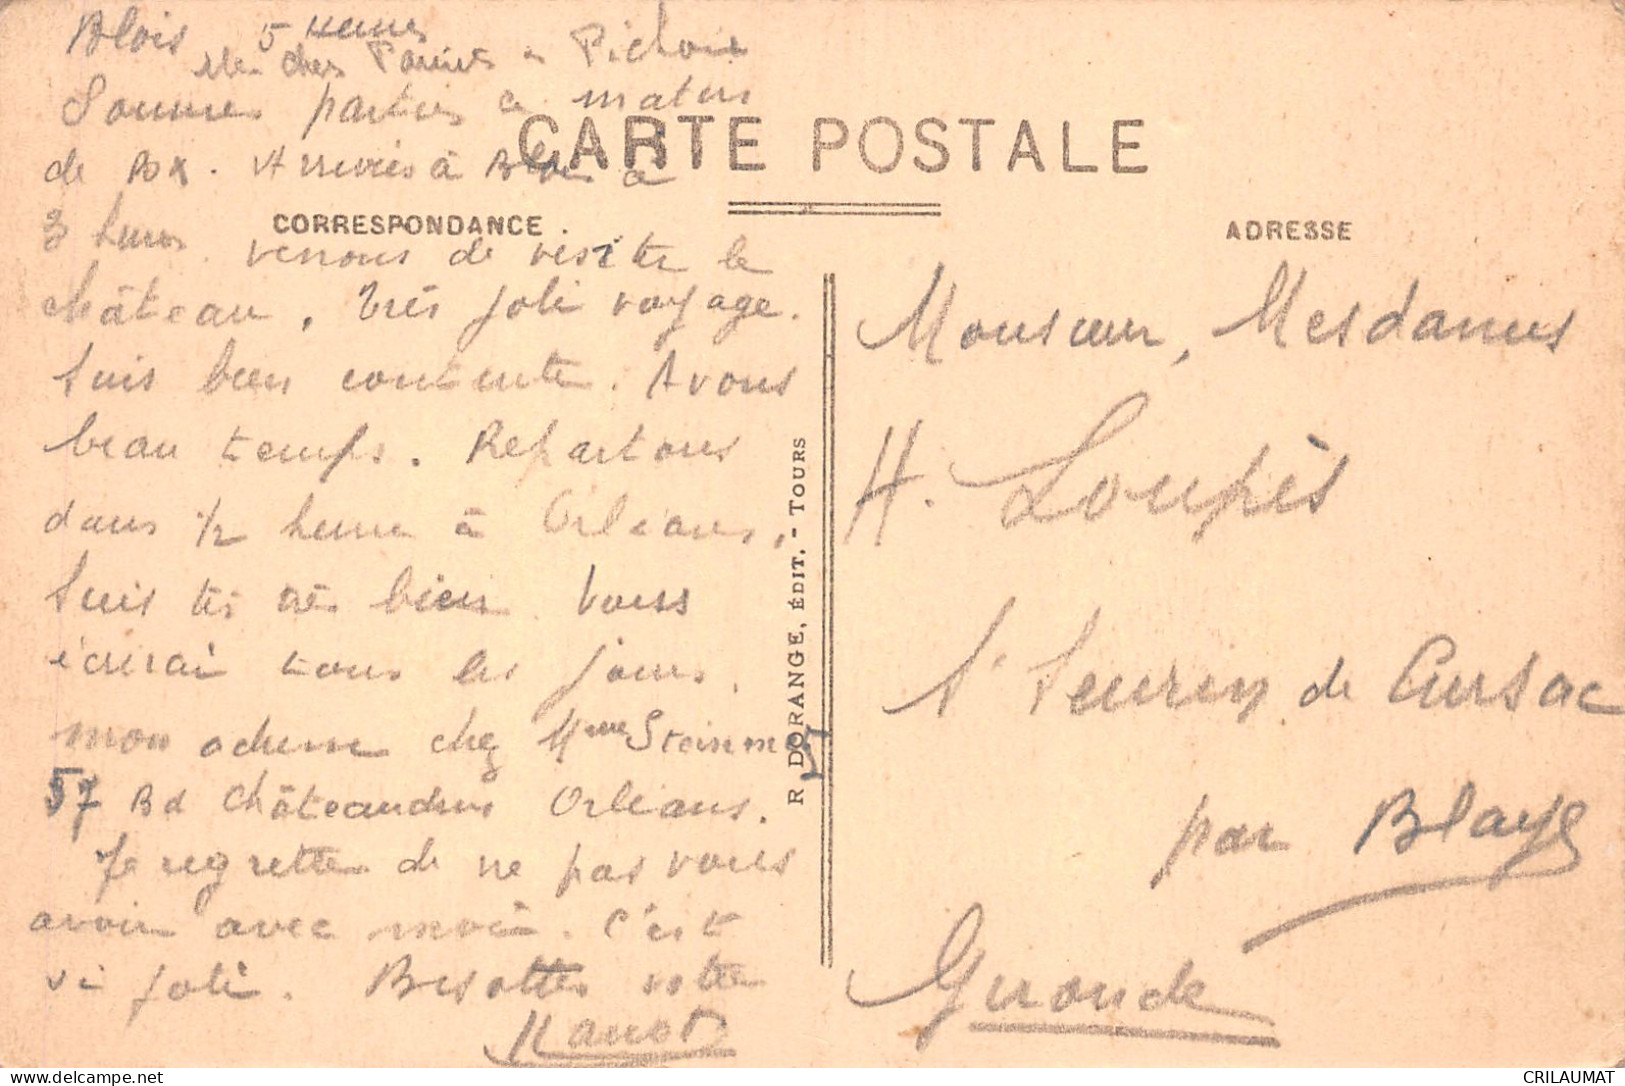 Blois 5 Heures
chers
Sommes parties ce matin
de Bx. Arrivées à Blois à
3 heures. venons de visiter le
château. Très joli voyage.
Suis bien contente. Avons
beau temps. Repartons
dans 1/2 heure à Orléans,
Suis très très bien Vous
écrirai tous les jours.
mon adresse chez Mme
57 Bd Châteaudun Orléans.
Je regrette de ne pas vous
avoir avec moi. C'est
si joli. Bisottes votre
CARTE POSTALE
CORRESPONDANCE
R DORANGE, ÉDIT. - TOURS
ADRESSE
Monsieur, Mesdames
H. Loupès
St Seurin de Cursac
par Blaye
Gironde
CRILAUMAT